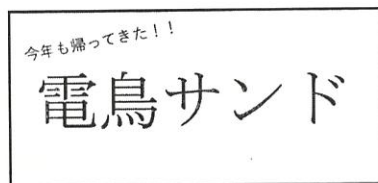 今年も帰ってきた！！
電鳥サンド